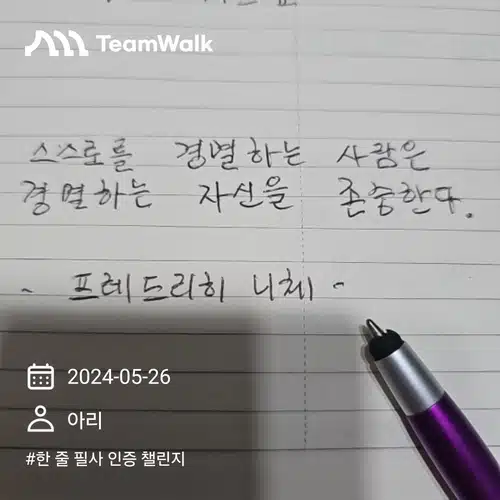 TeamWalk
스스로를 경멸하는 사람은
경멸하는 자신을 존중한다.
- 프레드리히 니체 -
2024-05-26
아리
#한 줄 필사 인증 챌린지